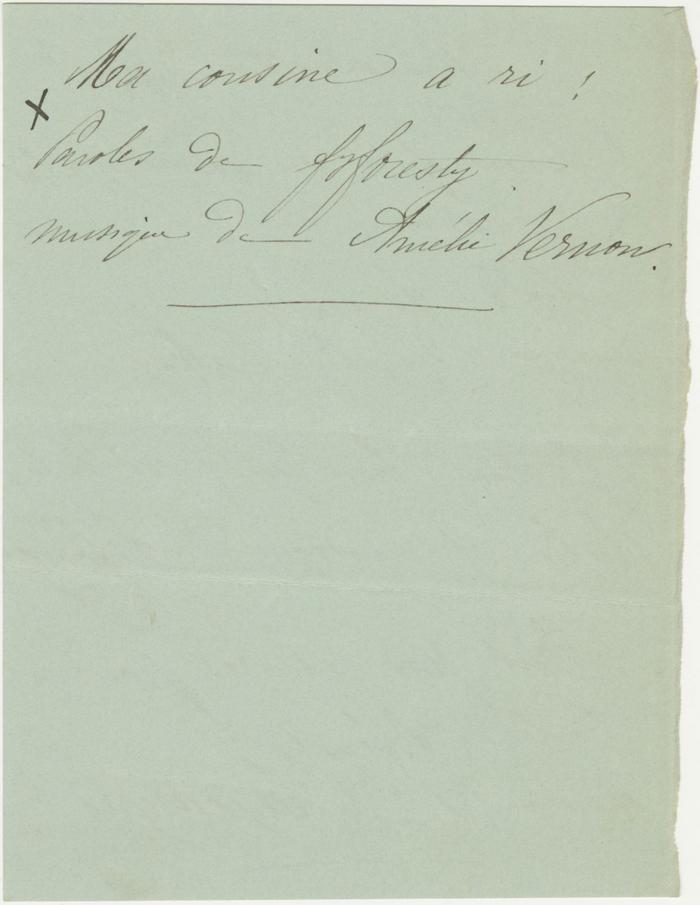 Ma cousine a ri !
X
Paroles de
musique de Amélie Vernon.